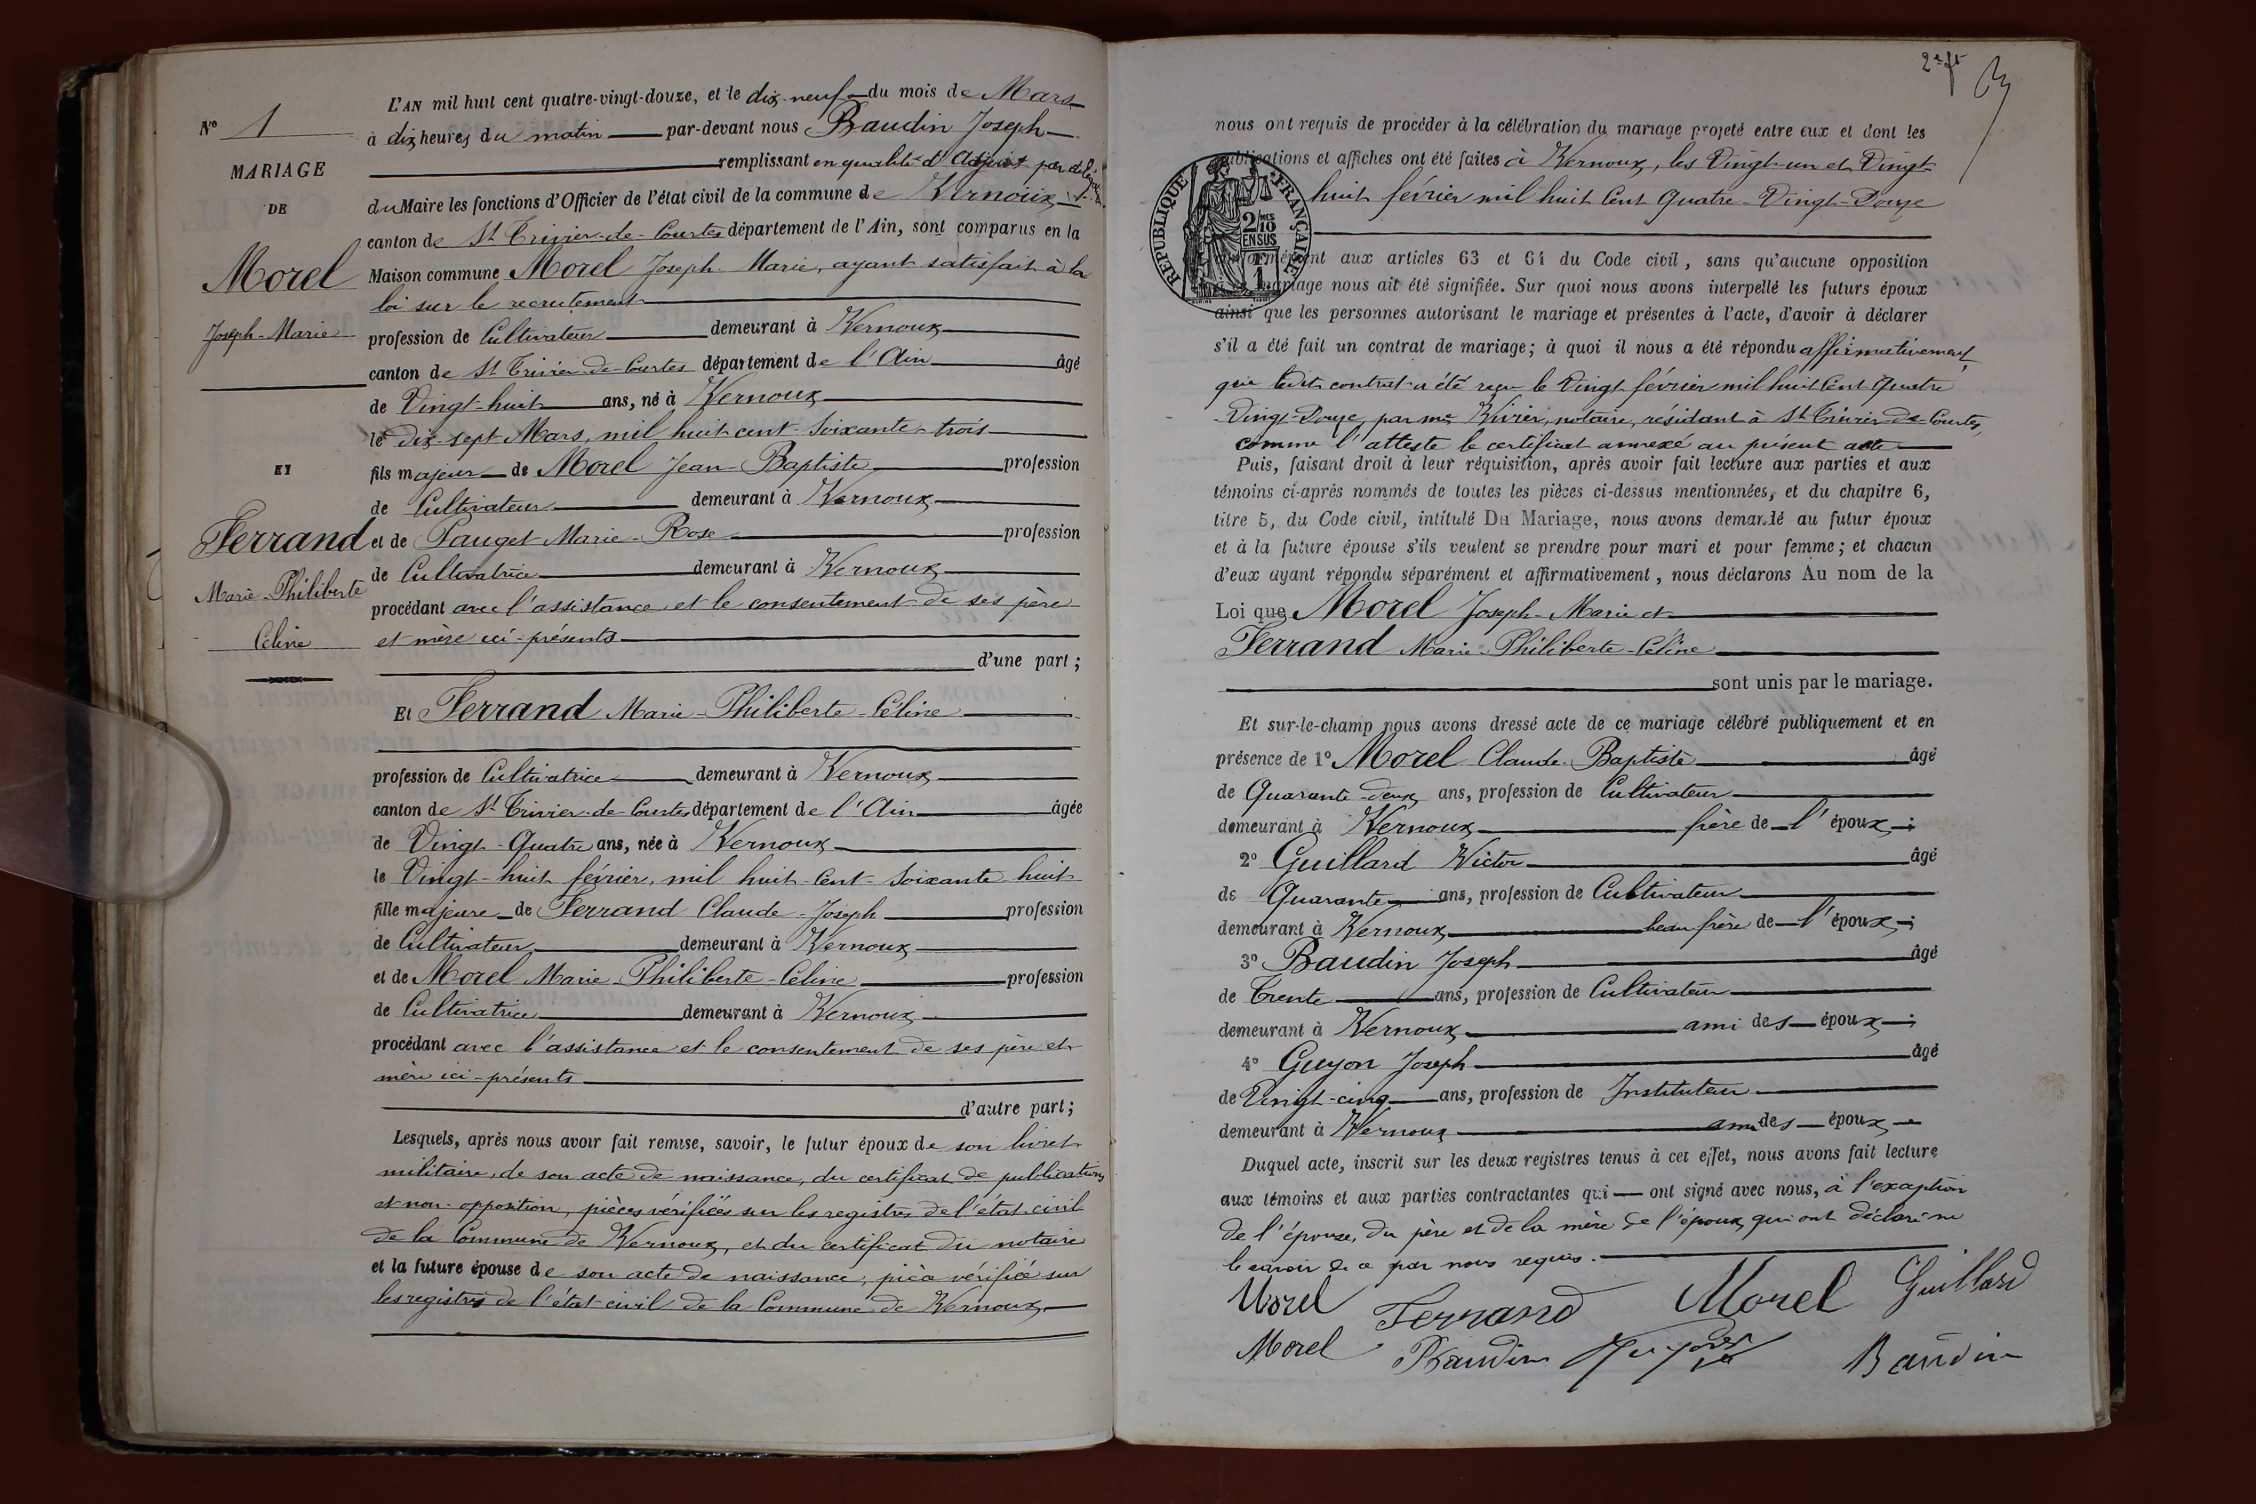 L'AN mil huit cent quatre-vingt-douze, et le dix-neuf du mois de Mars
à dix heures du matin par-devant nous Baudin Joseph
remplissant en qualité d'Adjoint par
du Maire les fonctions d'Officier de l'état civil de la commune de Vernoux
canton de St Trivier-de-Courtes département de l'Ain, sont comparus en la
Maison commune Morel Joseph-Marie, ayant satisfait à la
loi sur le recrutement
profession de Cultivateur demeurant à Vernoux
canton de St Trivier-de-Courtes département de l'Ain âgé
de Vingt-huit ans, né à Vernoux
le dix-sept Mars, mil huit cent soixante-trois
fils majeur de Morel Jean-Baptiste profession
de Cultivateur demeurant à Vernoux
et de Pauget Marie-Rose profession
de Cultivatrice demeurant à Vernoux
procédant avec l'assistance et le consentement de ses père
et mère ici-présents
d'une part ;
Et Ferrand Marie-Philiberte-Céline
profession de Cultivatrice demeurant à Vernoux
canton de St Trivier-de-Courtes département de l'Ain âgée
de Vingt-Quatre ans, née à Vernoux
le Vingt-huit février, mil huit-cent-soixante-huit
fille majeure de Ferrand Claude-Joseph profession
de Cultivateur demeurant à Vernoux
et de Morel Marie-Philiberte-Céline profession
de Cultivatrice demeurant à Vernoux
procédant avec l'assistance et le consentement de ses père et
mère ici-présents
d'autre part ;
Lesquels, après nous avoir fait remise, savoir, le futur époux de son livret
militaire, de son acte de naissance, du certificat de publications
et non-opposition, pièces vérifiées sur les registres de l'état-civil
de la Commune de Vernoux, et du certificat du notaire
et la future épouse de son acte de naissance, pièce vérifiée sur
les registres de l'état-civil de la Commune de Vernoux
No 1
MARIAGE
DE
Morel
Joseph-Marie
ET
Ferrand
Marie-Philiberte
Céline
nous ont requis de procéder à la célébration du mariage projeté entre eux et dont les
publications et affiches ont été faites à Vernoux, les Vingt-un et Vingt
huit février mil huit Cent Quatre-Vingt-Douze
RÉPUBLIQUE FRANÇAISE
2 MES
10
EN SUS
1 F
conformément aux articles 63 et 64 du Code civil, sans qu'aucune opposition
mariage nous ait été signifiée. Sur quoi nous avons interpellé les futurs époux
ainsi que les personnes autorisant le mariage et présentes à l'acte, d'avoir à déclarer
s'il a été fait un contrat de mariage ; à quoi il nous a été répondu affirmativement,
que ledit contrat a été reçu le Vingt février mil huit Cent Quatre
Vingt-Douze, par me Rivier, notaire, résidant à St Trivier-de-Courtes,
comme l'atteste le certificat annexé au présent acte
Puis, faisant droit à leur réquisition, après avoir fait lecture aux parties et aux
témoins ci-après nommés de toutes les pièces ci-dessus mentionnées, et du chapitre 6,
titre 5, du Code civil, intitulé Du Mariage, nous avons demandé au futur époux
et à la future épouse s'ils veulent se prendre pour mari et pour femme ; et chacun
d'eux ayant répondu séparément et affirmativement, nous déclarons Au nom de la
Loi que Morel Joseph-Marie et
Ferrand Marie-Philiberte-Céline
sont unis par le mariage.
Et sur-le-champ nous avons dressé acte de ce mariage célébré publiquement et en
présence de 1° Morel Claude-Baptiste âgé
de Quarante-deux ans, profession de Cultivateur
demeurant à Vernoux frère de l'époux ;
2° Guillard Victor âgé
de Quarante ans, profession de Cultivateur
demeurant à Vernoux beau frère de l'époux ;
3° Baudin Joseph âgé
de Trente ans, profession de Cultivateur
demeurant à Vernoux ami des époux ;
4° Guyon Joseph âgé
de Vingt-cinq ans, profession de Instituteur
demeurant à Vernoux ami des époux
Duquel acte, inscrit sur les deux registres tenus à cet effet, nous avons fait lecture
aux témoins et aux parties contractantes qui ont signé avec nous, à l'exception
de l'épouse, du père et de la mère de l'époux qui ont déclaré ne
le savoir de ce par nous requis.
Morel Ferrand Morel Guillard
Morel Baudin Guyon Baudin